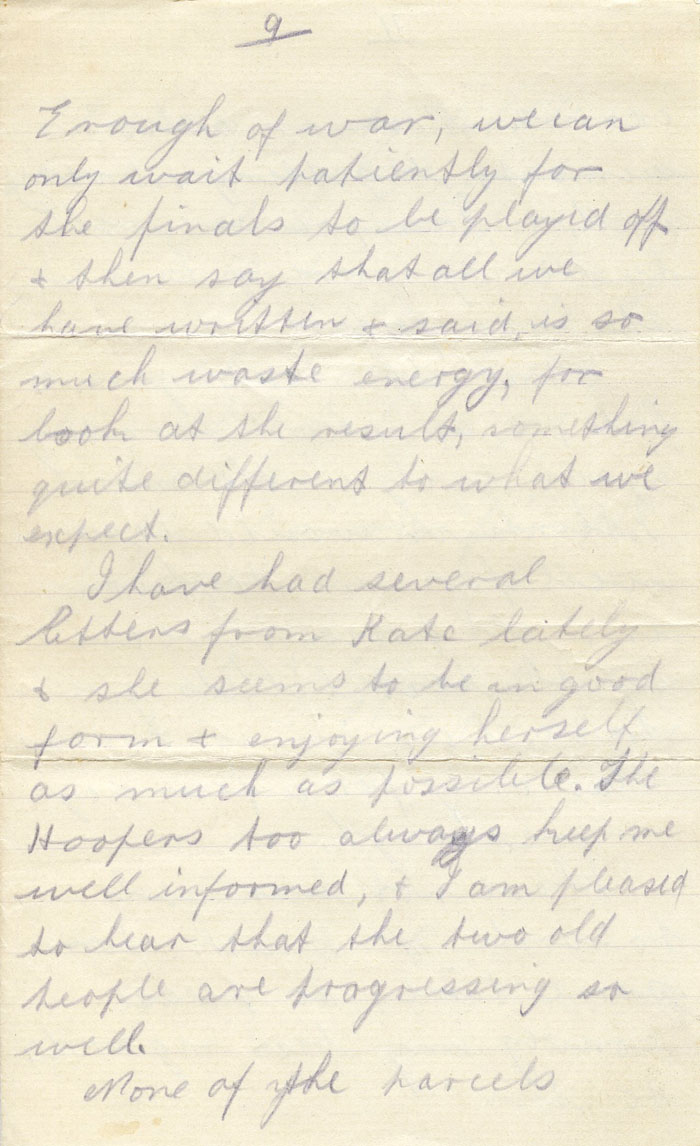 9
Enough of war, we can
only wait patiently for
the finals to be played off
& then say that all we
have written & said, is so
much waste energy, for
look at the result, something
quite different to what we
expect.
I have had several
letters from Kate lately
& she seems to be in good
form & enjoying herself
as much as possible. The
Hoopers too always keep me
well informed, & I am pleased
to hear that the two old
people are progressing so
well.
None of the parcels